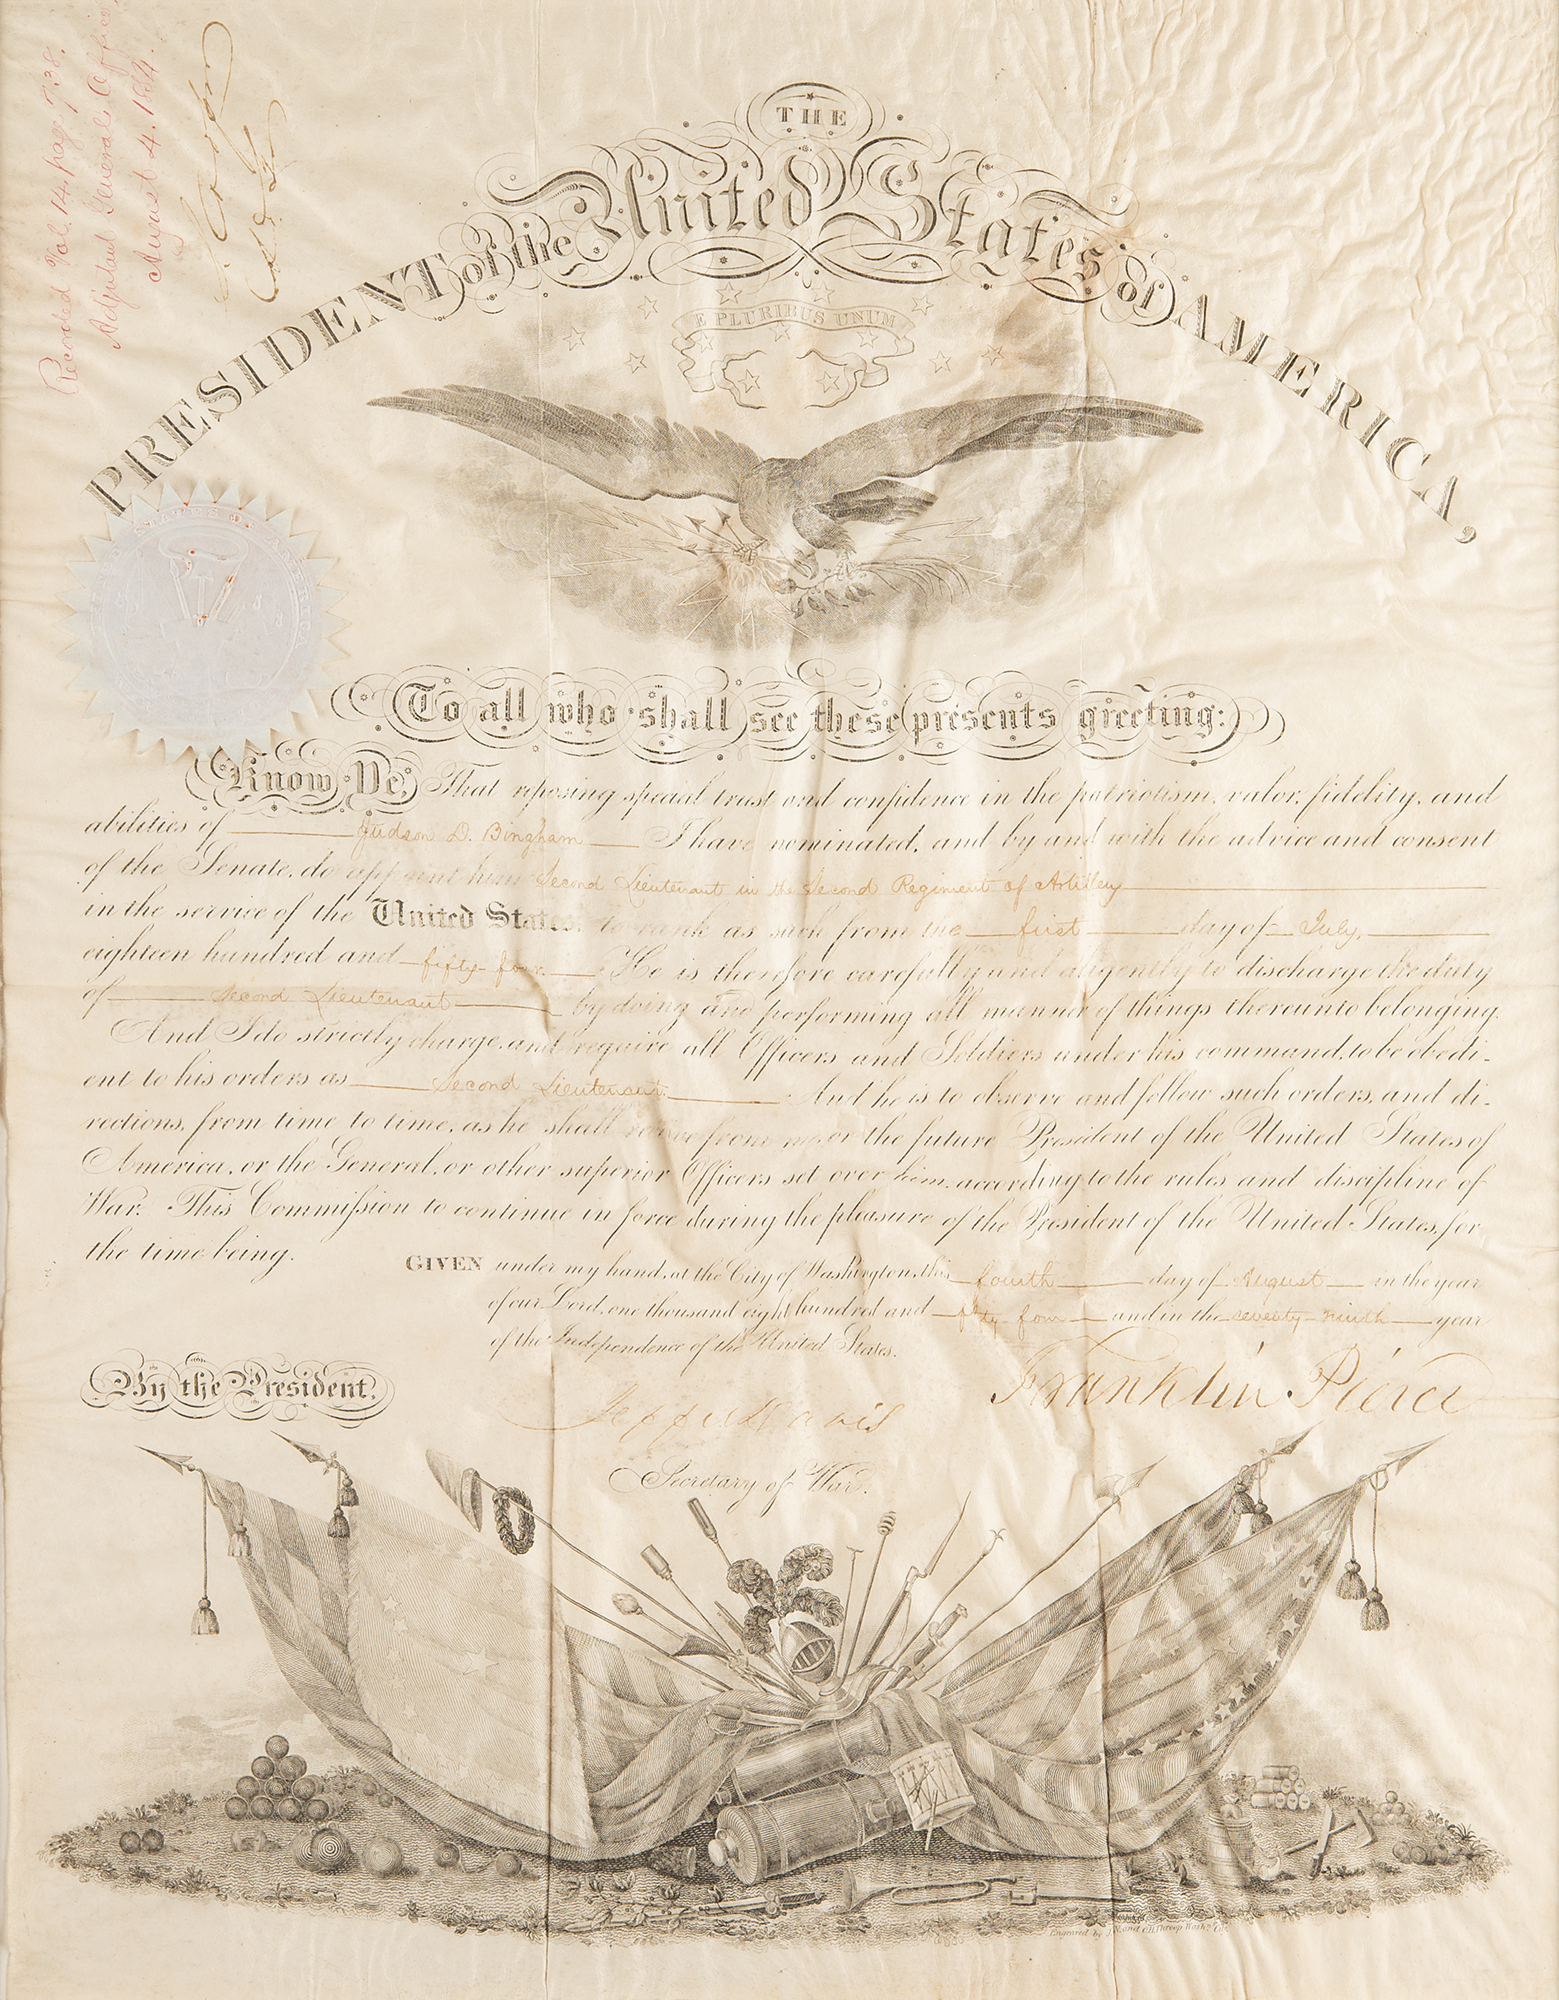 Recorded Vol. 14, page 738,
Adjutant General's Office
August 4. 1854.
S. Cooper
THE
PRESIDENT of the United States of AMERICA,
E PLURIBUS UNUM
To all who shall see these presents greeting:
Know Ye, That reposing special trust and confidence in the patriotism, valor, fidelity, and
abilities of Judson D. Bingham I have nominated, and by and with the advice and consent
of the Senate, do appoint him Second Lieutenant in the Second Regiment of Artillery
in the service of the United States: to rank as such from the first day of July,
eighteen hundred and fifty-four. He is therefore carefully and diligently to discharge the duty
of Second Lieutenant by doing and performing all manner of things thereunto belonging.
And I do strictly charge, and require all Officers and Soldiers under his command, to be obedi-
ent to his orders as Second Lieutenant. And he is to observe and follow such orders, and di-
rections, from time to time, as he shall receive from me, or the future President of the United States of
America, or the General, or other superior Officers set over him, according to the rules and discipline of
War. This Commission to continue in force during the pleasure of the President of the United States, for
the time being.
GIVEN under my hand, at the City of Washington, this fourth day of August in the year
of our Lord, one thousand eight hundred and fifty four and in the seventy-ninth year
of the Independence of the United States.
By the President.
Franklin Pierce
Jeffn Davis
Secretary of War.
Engraved by J.V. and O.H. Throop Washn. City